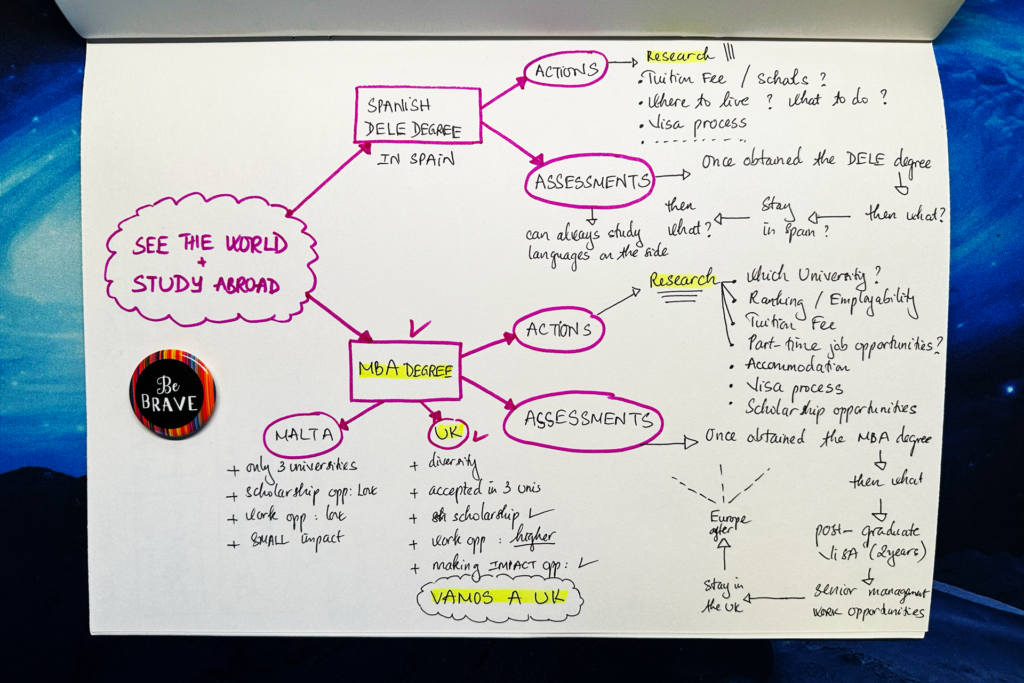 SEE THE WORLD
+
STUDY ABROAD
Be
BRAVE
SPANISH
DELE DEGREE
IN SPAIN
ACTIONS
Research
• Tuition Fee / Schols ?
• Where to live ? What to do ?
• Visa process
ASSESSMENTS
Once obtained the DELE degree
then what?
Stay
in Spain ?
then
what?
can always study
languages on the side
MBA DEGREE
ACTIONS
Research
• Which University ?
• Ranking / Employability
• Tuition Fee
• Part-time job opportunities?
• Accommodation
• Visa process
• Scholarship opportunities
ASSESSMENTS
Once obtained the MBA degree
then what
post-graduate
VISA (2years)
senior management
work opportunities
Stay in
the UK
Europe
after
MALTA
+ only 3 universities
+ scholarship opp: Low
+ work opp : low
+ SMALL impact
UK
+ diversity
+ accepted in 3 unis
+ scholarship ✓
+ work opp : higher
+ making IMPACT opp: ✓
VAMOS A UK